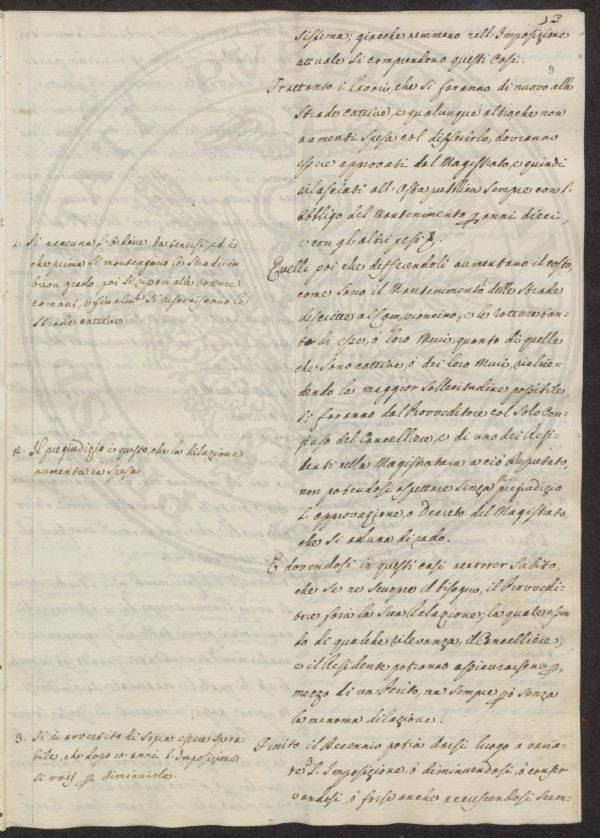 13
sistema; giacche nemmeno nell'Imposizione
attuale si comprendono questi Casi.
Trattanto i Lavori, che si faranno di nuovo alle
Strade cattive, e qualunque altro che non
aumenti Spesa col differirlo, dovranno
essere approvati dal Magistrato, e quindi
rilasciati all'Asta pubblica sempre con l'
obbligo del Mantenimento p anni dieci,
e con gli altri
Quelli poi che differendoli aumentano il costo,
come sono il Mantenimento delle Strade
descritte al Campioncino, e le rotture tan-
to di esse, ò loro Muri, quanto di quelle
che sono cattive, ò dei loro Muri, richie-
dendo la maggior sollecitudine possibile,
si faranno dal Provveditore col solo Con-
senso del Cancelliere, e di uno dei Resi-
denti nella Magistratura a ciò deputato,
non potendosi aspettare senza pregiudizio
l'approvazione, o Decreto del Magistrato,
che si aduna di rado.
E dovendosi in questi casi accorrer subito,
che se ne scuopre il bisogno, il Provvedi-
tore farà la sua Relazione; la quale essen-
do di qualche rilevanza, il Cancelliere,
e il Residente potranno assicurarsene p
mezzo di un Perito, ma sempre però senza
la menoma dilazione.
Finito il Decennio potrà darsi luogo a varia-
re d. Imposizione, ò diminuendosi, ò conser-
vandosi, ò forse anche accrescendosi secon-
1. Si accenna l'ordine da tenersi, ed è
che prima si mantengano le Strade in
buon grado, poi si ripari alle rotture
comuni, e finalm. si risarciscano le
Strade cattive
2. Il pregiudizio è questo, che la dilazione
aumenta la spesa.
3. Si è avvertito di sopra essere spera-
bile, che dopo 10 anni l'Imposizione
si p diminuirla.